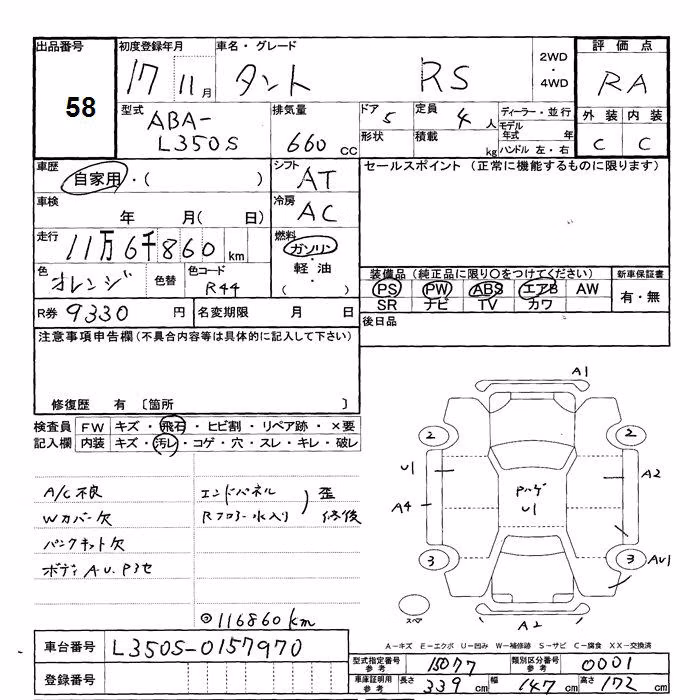 出品番号 初度登録年月 車名・グレード 2WD・4WD 評価点
58 17 11月 タント RS RA
型式 排気量 ドア 定員 ディーラー・並行 外装 内装
ABA-L350S 660cc 5 4人 モデル年式 年 C C
形状 積載 kg ハンドル 左・右
車歴 シフト セールスポイント (正常に機能するものに限ります)
自家用・( ) AT
車検 冷房
年 月( 日) AC
走行 燃料
11万6千860km ガソリン・軽油・( )
色 色替 色コード 装備品 (純正品に限り○をつけてください) 新車保証書
オレンジ R44 PS PW ABS エアB AW 有・無
SR ナビ TV カワ
R券 9330円 名変期限 月 日 後日品
注意事項申告欄(不具合内容等は具体的に記入して下さい)
修復歴 有 〔箇所 〕
検査員 FW キズ・飛石・ヒビ割・リペア跡・×要
記入欄 内装 キズ・汚レ・コゲ・穴・スレ・キレ・破レ
A1
2 2
U1 A2
A4 Pハゲ U1
3 3 AU1
スペア A2
A/C不良 エンドパネル 歪
Wカバー欠 Rフロアー水入り 修後
パンクキット欠
ボディAU.P3セ
◎116860km
A-キズ E-エクボ U-凹み W-補修跡 S-サビ C-腐食 XX-交換済
車台番号 L350S-0157970
登録番号
型式指定番号 参考 15077 類別区分番号 参考 0001
車庫証明用 参考 長さ 339cm 幅 147cm 高さ 172cm